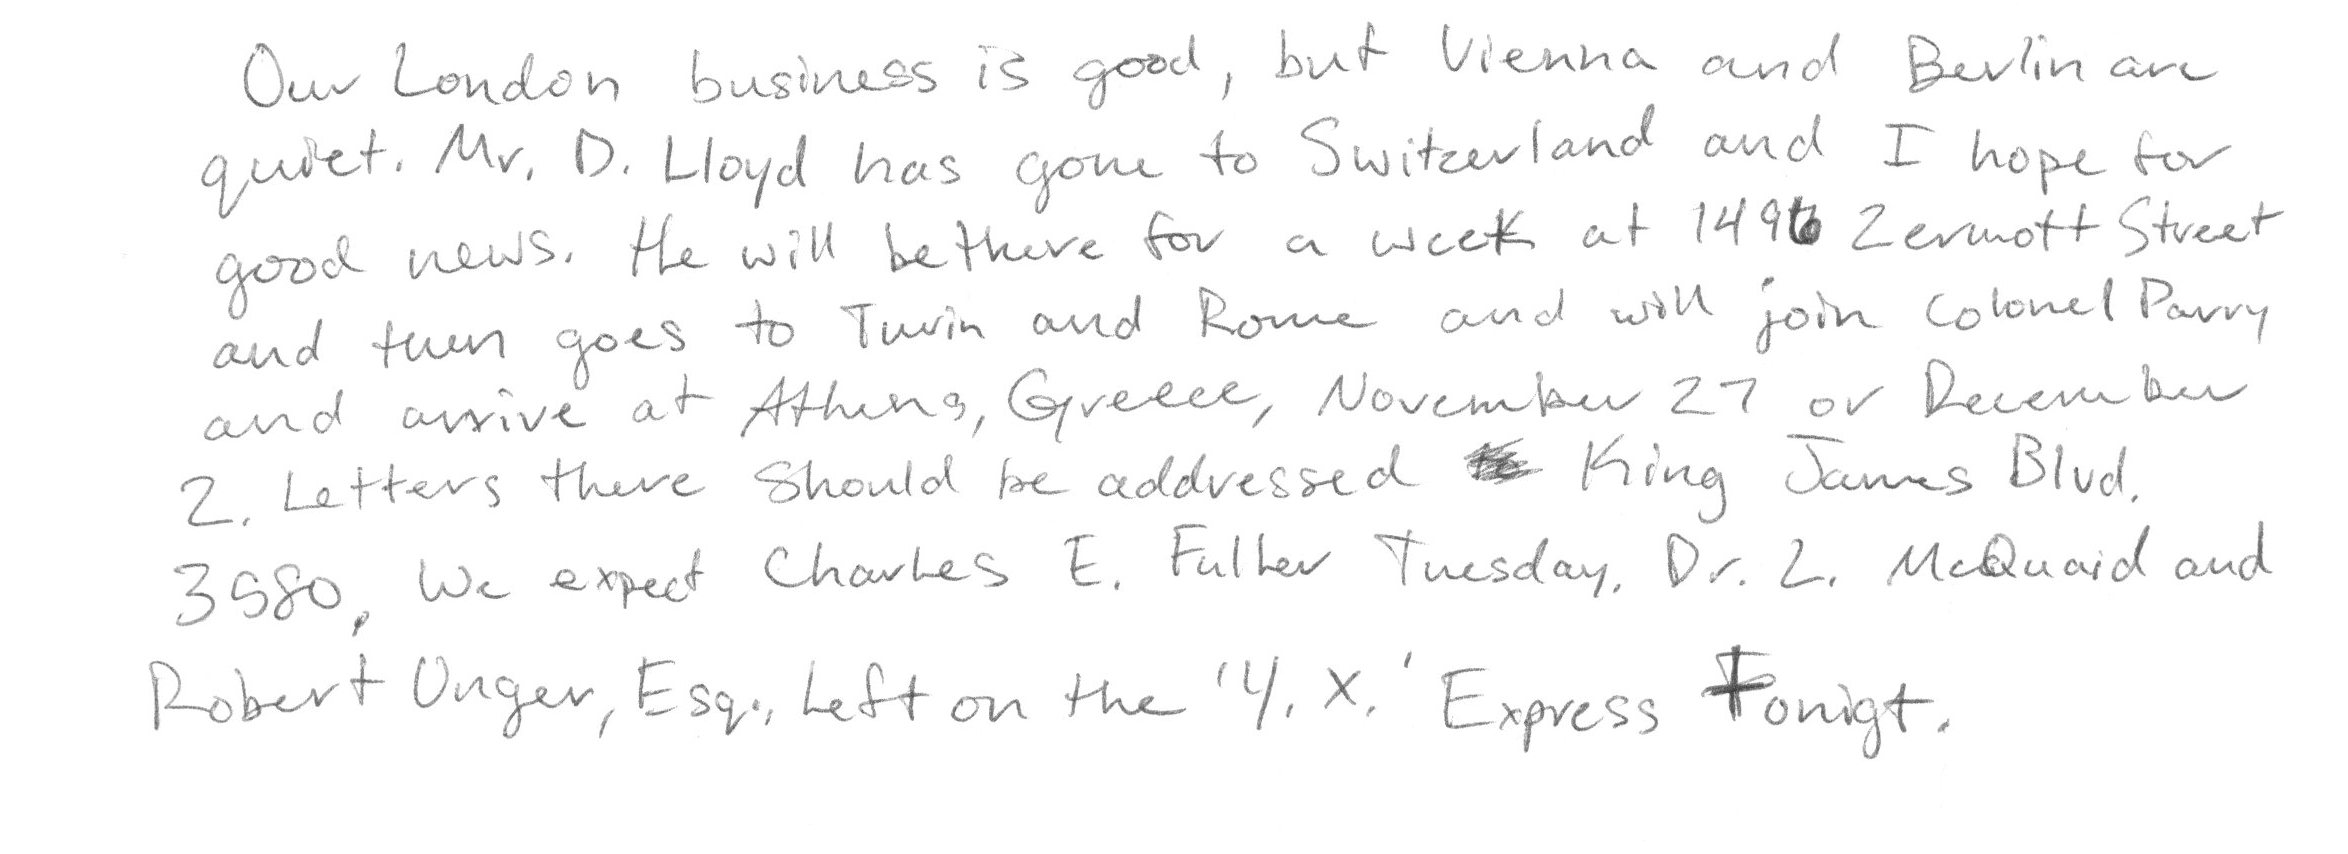 Our London business is good, but Vienna and Berlin are
quiet. Mr. D. Lloyd has gone to Switzerland and I hope for
good news. He will be there for a week at 1496 Zermott Street
and then goes to Turin and Rome and will join Colonel Parry
and arrive at Athens, Greece, November 27 or December
2. Letters there should be addressed King James Blvd.
3580. We expect Charles E. Fuller Tuesday. Dr. L. McQuaid and
Robert Unger, Esq., left on the 'Y. X.' Express Tonigt.